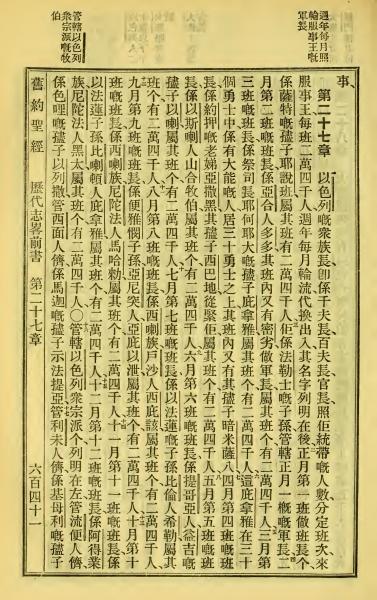 週年每月照
輪服事王嘅
軍長
事、
第二十七章 以色列嘅衆族長卽係千夫長、百夫長、官長、照佢統帶嘅人數分定班次、來
服事王每班二萬四千人週年每月輪流代換出入其名字列明在後正月第一班做班長個
係薩特嘅孻子耶說班屬其班有二萬四千人佢係法勒士嘅子孫管轄正月一概嘅軍長二
月第二班嘅班長係亞合人多多其班內又有密劣做軍長屬其班個有二萬四千人三月第
三班嘅班長係祭司長耶何耶大嘅孻子庇拿雅屬其班個有二萬四千人這庇拿雅在三十
個勇士中係有大能嘅人居三十勇士之上其班內又有其孻子暗米薩八四月第四班嘅班
長係約押嘅老娣亞撒黑其孻子西巴地從緊佢屬其班個有二萬四千人五月第五班嘅班
長係以斯喇人山合牧伯屬其班個有二萬四千人六月第六班嘅班長係提哥亞人益吉嘅
孻子以喇屬其班個有二萬四千人七月第七班嘅班長係以法蓮嘅子孫比倫人希勒屬其
班個有二萬四千人八月第八班嘅班長係西喇族戶沙人西庇該屬其班個有二萬四千人
九月第九班嘅班長係便雅憫子孫亞尼突人亞庇以泄屬其班個有二萬四千人十月第十
班嘅班長係西喇族尼陀法人馬哈勒屬其班個有二萬四千人十一月第十一班嘅班長係
以法蓮子孫比喇頓人庇拿雅屬其班個有二萬四千人十二月第十二班嘅班長係阿得業
族尼陀法人黑太屬其班個有二萬四千人○管轄以色列衆宗派個列明在左管流便人儕
係色哩嘅孻子以列撒管西面人儕係馬迦嘅孻子示法提亞管利未人儕係基母利嘅孻子
管轄以色列
衆宗派嘅牧
伯
舊約聖經 歷代志畧前書 第二十七章 六百四十一